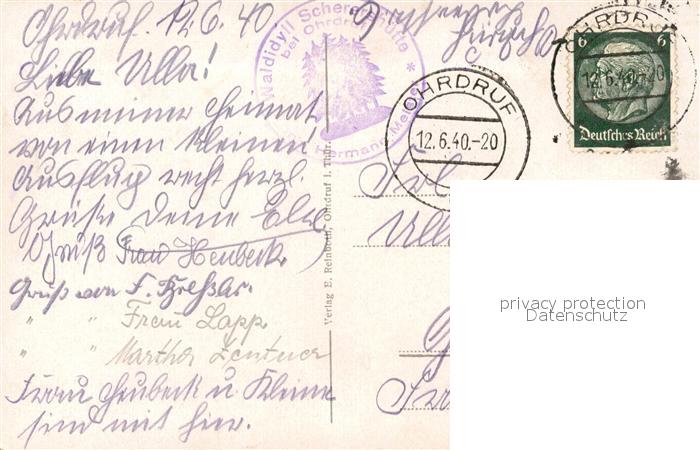 Ohrdruf. 12.6.40
Liebe Ulla!
Aus meiner Heimat
von einem kleinen
Ausflug recht herzl.
Grüße Deine Elsa
Gruß Frau Heubeck
Gruß von F.
" " Frau Lapp
" " Martha Zentner
Frau Heubeck u. Kleine
sind mit hier.
Waldidyll Scherershütte
bei Ohrdruf
Hermann
Verlag E. Reinboth, Ohrdruf i. Thür.
OHRDRUF
12.6.40.-20
OHRDRUF
12.6.40.-20
6 6
Deutsches Reich
Frl.
Ulla
privacy protection
Datenschutz